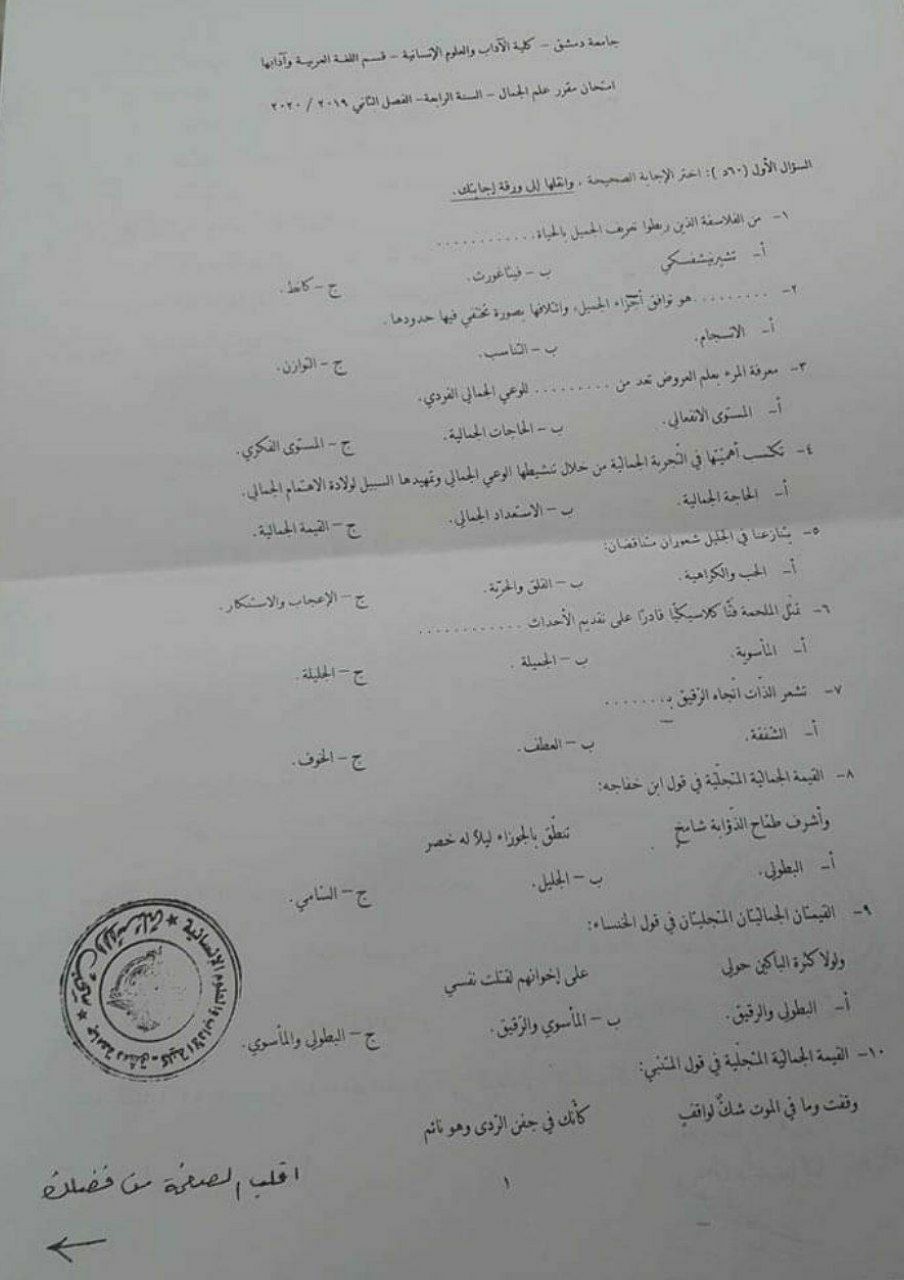 جامعة دمشق – كلية الآداب والعلوم الإنسانية – قسم اللغة العربية وآدابها
امتحان مقرر علم الجمال – السنة الرابعة – الفصل الثاني ٢٠١٩ / ٢٠٢٠
السؤال الأول (٦٠د): اختر الإجابة الصحيحة ، وانقلها إلى ورقة إجابتك.
١- من الفلاسفة الذين ربطوا تعريف الجميل بالحياة............
أ- تشيرنيشفسكي ب- فيثاغورث. ج- كانط.
٢- .......... هو توافق أجزاء الجميل، وائتلافها بصورة تختفي فيها حدودها.
أ- الانسجام. ب- التناسب. ج- التوازن.
٣- معرفة المرء بعلم العروض تعد من ......... للوعي الجمالي الفردي.
أ- المستوى الانفعالي. ب- الحاجات الجمالية. ج- المستوى الفكري.
٤- تكتسب أهميّتها في التّجربة الجمالية من خلال تنشيطها الوعي الجمالي وتمهيدها السبيل لولادة الاهتمام الجمالي.
أ- الحاجة الجمالية. ب- الاستعداد الجمالي. ج- القيمة الجمالية.
٥- يتنازعنا في الجليل شعوران متناقضان:
أ- الحب والكراهية. ب- القلق والحريّة. ج- الإعجاب والاستنكار.
٦- تمثّل الملحمة فنًّا كلاسيكيًّا قادرًا على تقديم الأحداث ............
أ- المأسوية. ب- الجميلة. ج- الجليلة.
٧- تشعر الذّات اتّجاه الرّقيق بـ.......
أ- الشفقة. ب- العطف. ج- الخوف.
٨- القيمة الجمالية المتجلّية في قول ابن خفاجه:
وأشرف طمّاح الذّؤابة شامخ تنطّق بالجوزاء ليلاً له خصر
أ- البطولي. ب- الجليل. ج- السّامي.
٩- القيمتان الجماليّتان المتجليتان في قول الخنساء:
ولولا كثرة الباكين حولي على إخوانهم لقتلت نفسي
أ- البطولي والرقيق. ب- المأسوي والرّقيق. ج- البطولي والمأسوي.
١٠- القيمة الجمالية المتجلّية في قول المتنبي:
وقفت وما في الموت شكّ لواقفٍ كأنّك في جفن الرّدى وهو نائم
١
اقلب الصفحة من فضلك
جامعة دمشق - كلية الآداب والعلوم الإنسانية